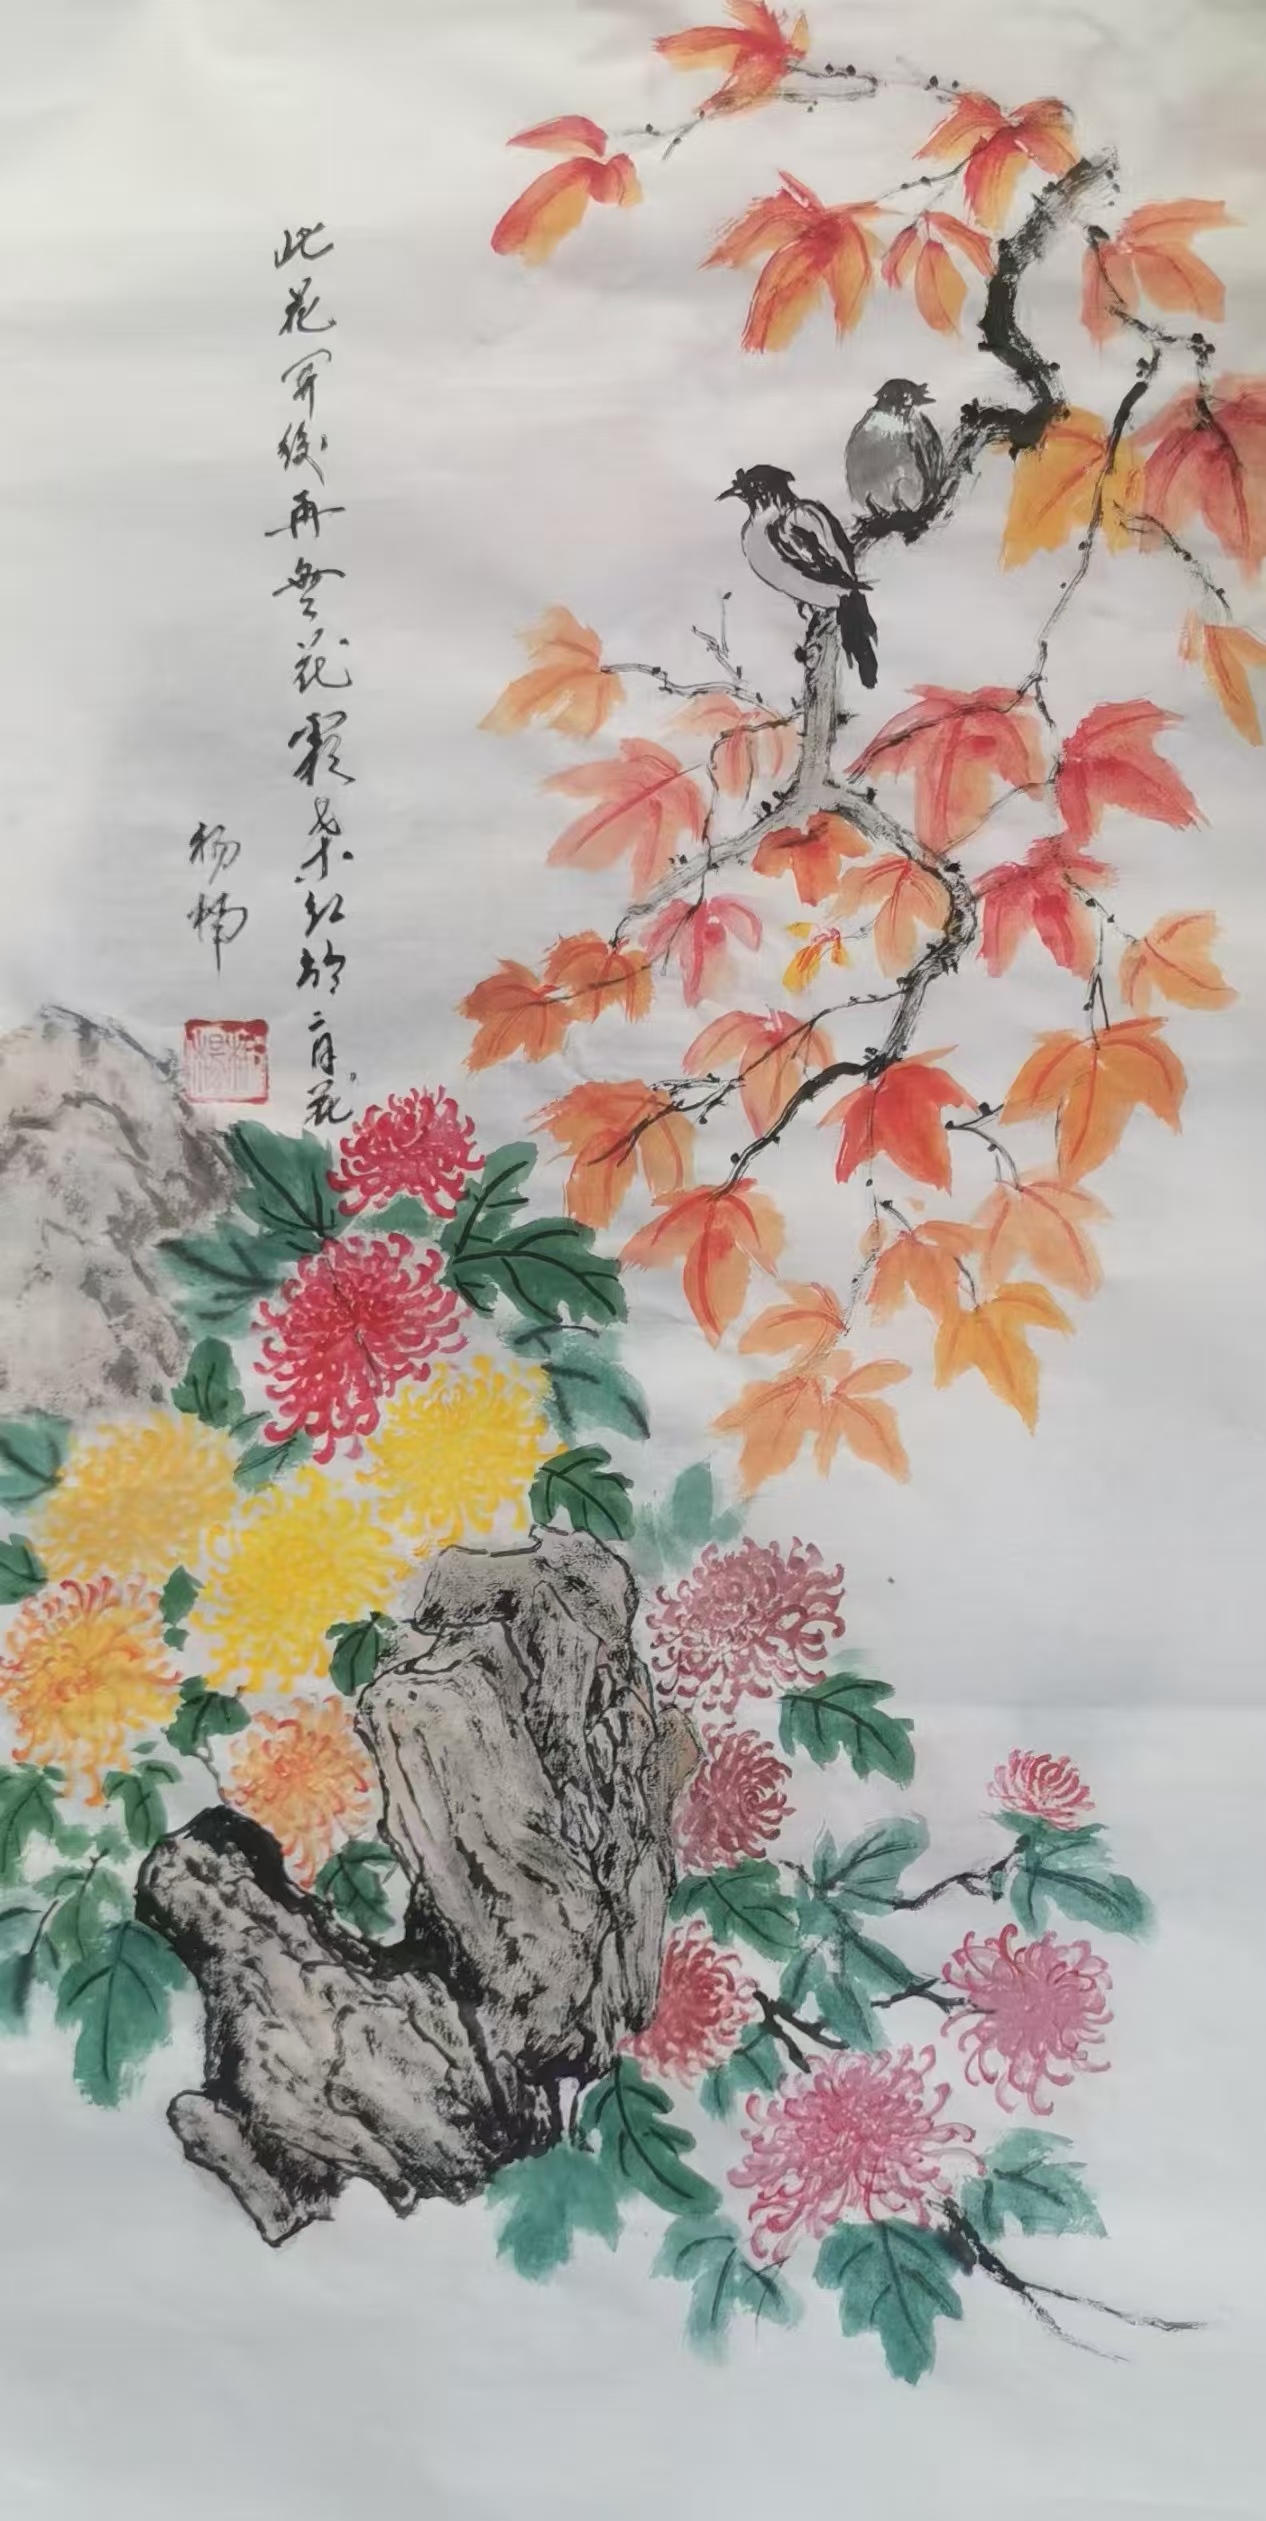 此花開後再無花霜葉紅於二月花
杨楠